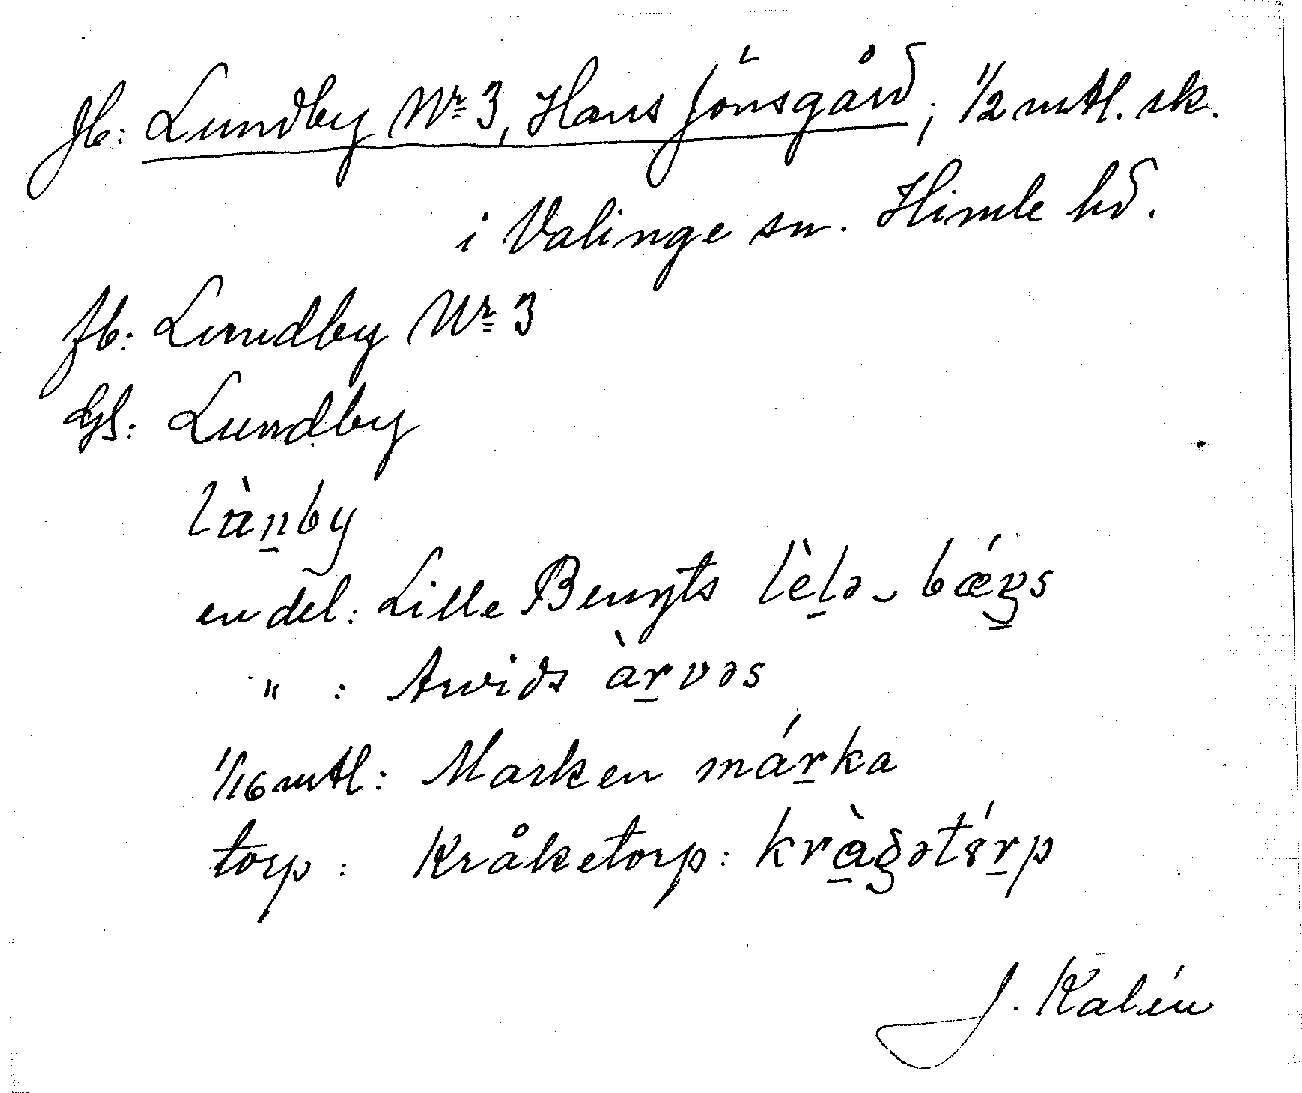 Jb: Lundby Nr 3, Hans Jönsgård; 1/2 mtl. sk.
i Valinge sn. Himle hd.
Jb: Lundby Nr 3
Gs: Lundby
lànby
en del: Lille Bengts lèlə-bǽgs
" : Arvids àrvəs
1/16 mtl: Marken márka
torp: Kråketorp:
J. Kalén